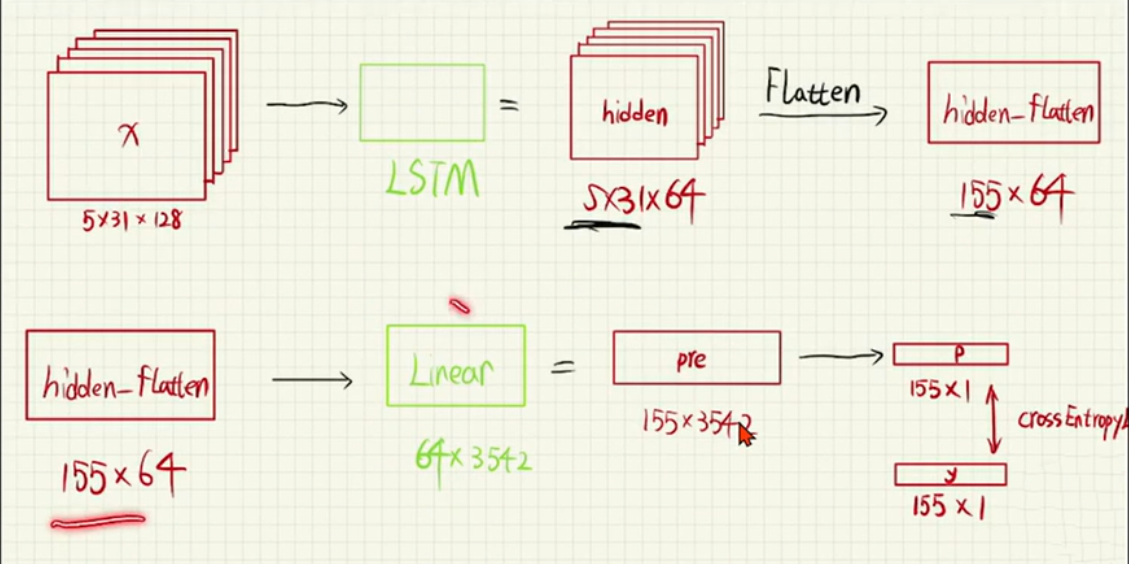 x
5×31×128
LSTM
=
hidden
5×31×64
Flatten
hidden_flatten
155×64
hidden_flatten
155×64
Linear
64×3542
=
pre
155×3542
P
155×1
crossEntropyL
y
155×1